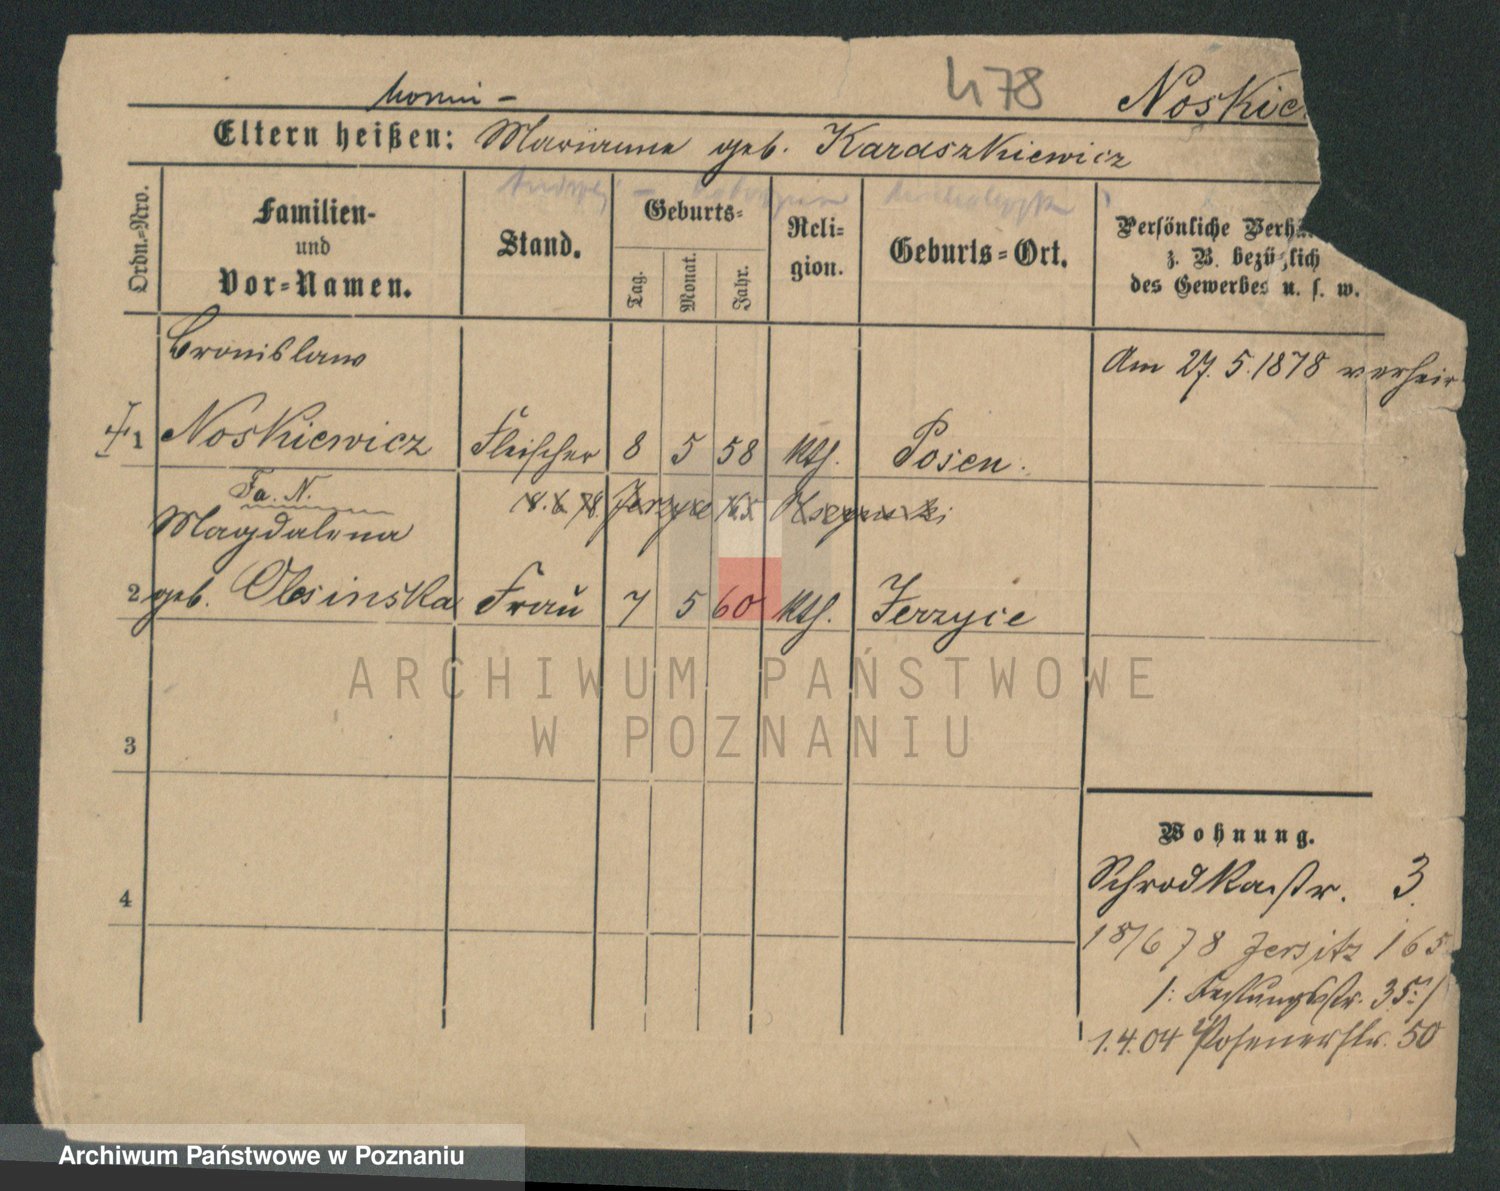 478
Noskie
Eltern heißen: Marianne geb. Karaszkiewicz
Ordn.-Nro.
Familien-
und
Vor-Namen.
Stand.
Geburts-
Tag.
Monat.
Jahr.
Reli-
gion.
Geburts-Ort.
Persönliche Verh
z. B. bezüglich
des Gewerbes u. s. w.
Bronislaw
Am 27. 5. 1878 verheir
1 Noskiewicz Fleischer 8 5 58 kth. Posen.
Fa. N.
Magdalena
2 geb. Olsinska Frau 7 5 60 kth. Jerzyce
3
4
Wohnung.
Schrodkastr. 3.
18/6 78 Jersitz 165
/: Festungsstr. 35 :/
1.4.04 Posenerstr. 50
ARCHIWUM PAŃSTWOWE
W POZNANIU
Archiwum Państwowe w Poznaniu